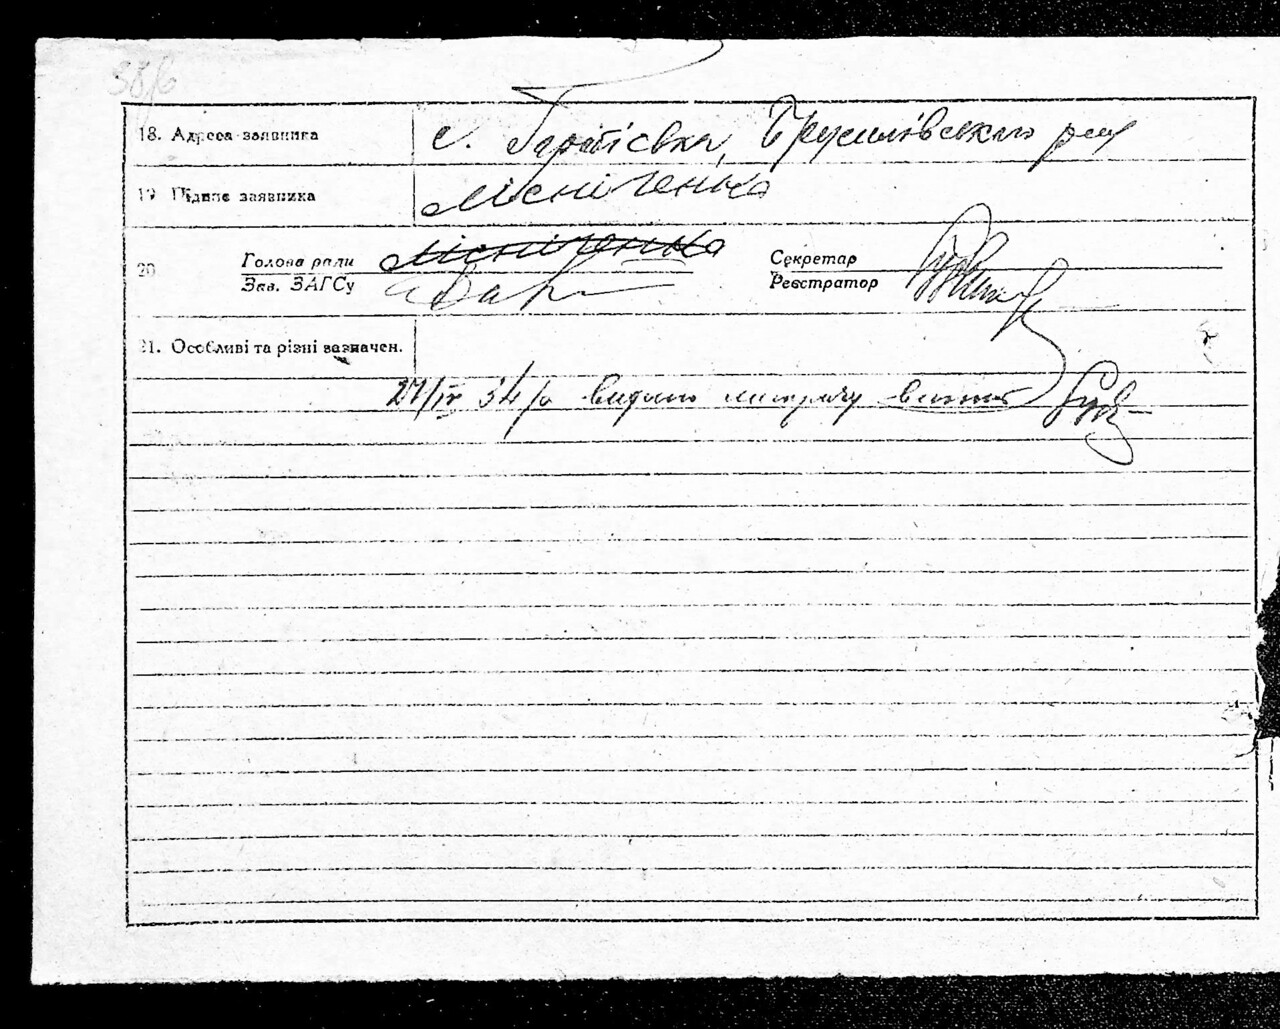 38/6
18. Адреса заявника с. Гарбісвка, Брусилівського рай
19 Підпис заявника Лісніченько
20 Голова ради Лісніченько Секретар
Зав. ЗАГСу Реєстратор
21. Особливі та різні зазначен.
27/IV 34 р видано витяг